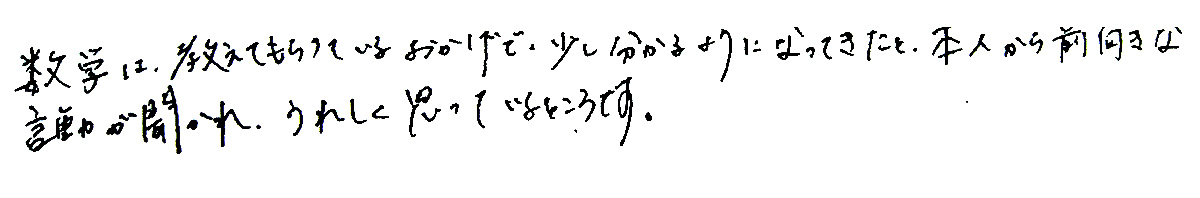 数学は、教えてもらっているおかげで、少し分かるようになってきたと、本人から前向きな
言動が聞かれ、うれしく思っているところです。